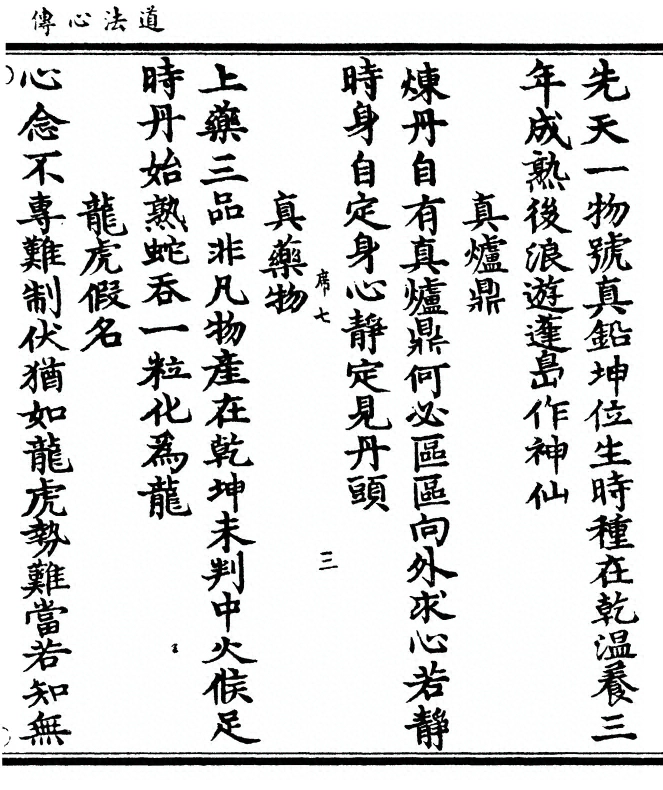 道法心傳
先天一物號真鉛坤位生時種在乾温養三
年成熟後浪遊蓬島作神仙
真爐鼎
煉丹自有真爐鼎何必區區向外求心若靜
時身自定身心靜定見丹頭
席七
三
真藥物
上藥三品非凡物產在乾坤未判中火候足
時丹始熟蛇吞一粒化爲龍
龍虎假名
心念不專難制伏猶如龍虎勢難當若知無